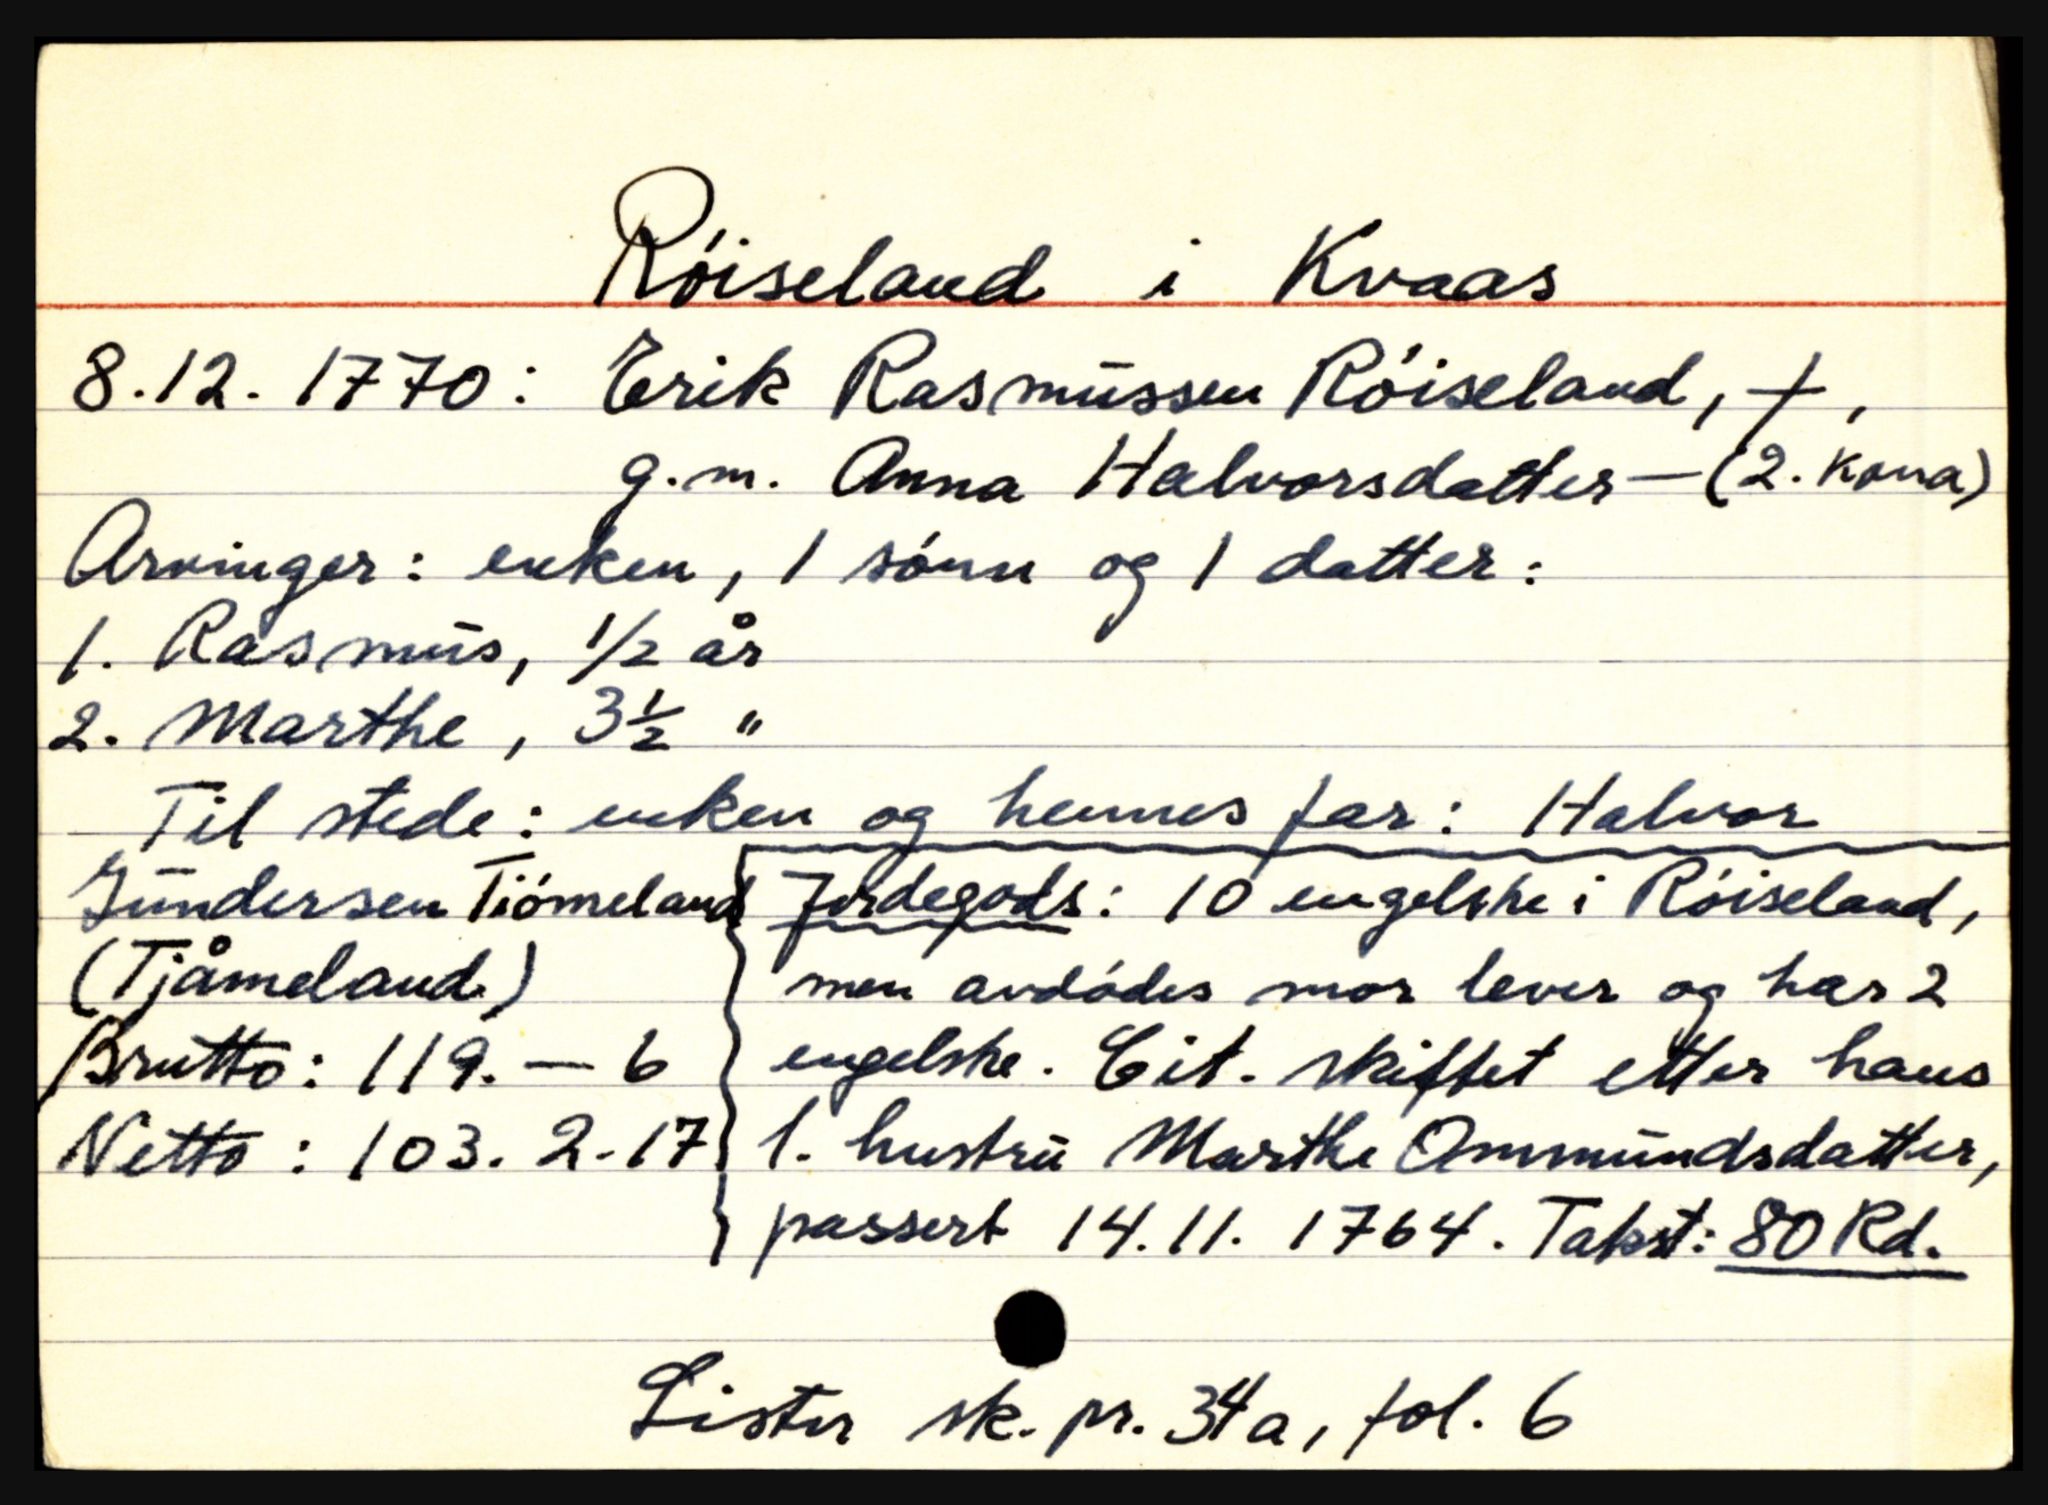 Róiseland i Kvaas
8.12. 1770: Erik Rasmussen Róiseland, †,
g.m. Anna Halvorsdatter — (2. kona)
Arvinger: enken, 1 sónn og 1 datter:
1. Rasmus, 1/2 år
2. Marthe, 3 1/2 "
Til stede: enken og hennes far: Halvor
Gundersen Tiómeland
(Tjåmeland)
Brutto: 119. — 6
Netto: 103. 2-17
Jordegods: 10 engelske i Róiseland,
men avdódes mor lever og har 2
engelske. Cit. skiftet etter hans
1. hustru Marthe Ommundsdatter,
passert 14.11. 1764. Takst: 80 Rd.
Lister sk. pr. 34a, fol. 6